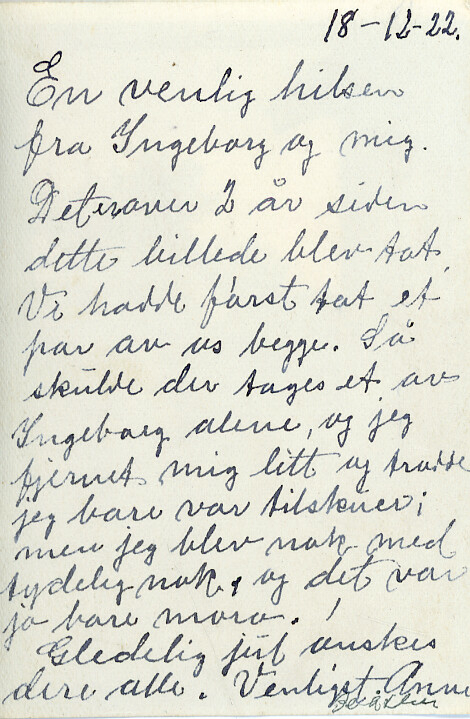 18-12-22.
En venlig hilsen
fra Ingeborg og mig.
Det er over 2 år siden
dette billede blev tat.
Vi hadde først tat et
par av os begge. Så
skulde der tages et av
Ingeborg alene, og jeg
fjernet mig litt og trodde
jeg bare var tilskuer;
men jeg blev nok med
tydelig nok, og det var
jo bare moro.!
Gledelig jul ønskes
dere alle. Venligst. Anne